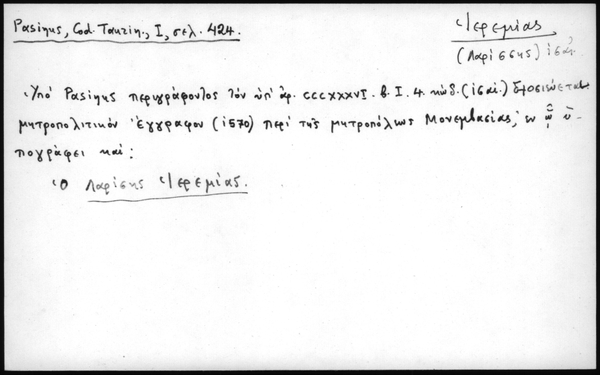 Pasinus, Cod. Taurin., I, σελ. 424.
Ἱερεμίας
(Λαρίσσης) ις´ αἰ.
Ὑπό Pasinus περιγράφοντος τόν ὑπ' ἀρ. CCCXXXVI. b. I. 4. κώδ. (ις´ αἰ.) δημοσιεύεται
μητροπολιτικόν ἔγγραφον (1570) περί τῆς μητροπόλεως Μονεμβασίας, ἐν ᾧ ὑ-
πογράφει καί:
Ὁ Λαρίσης Ἱερεμίας.